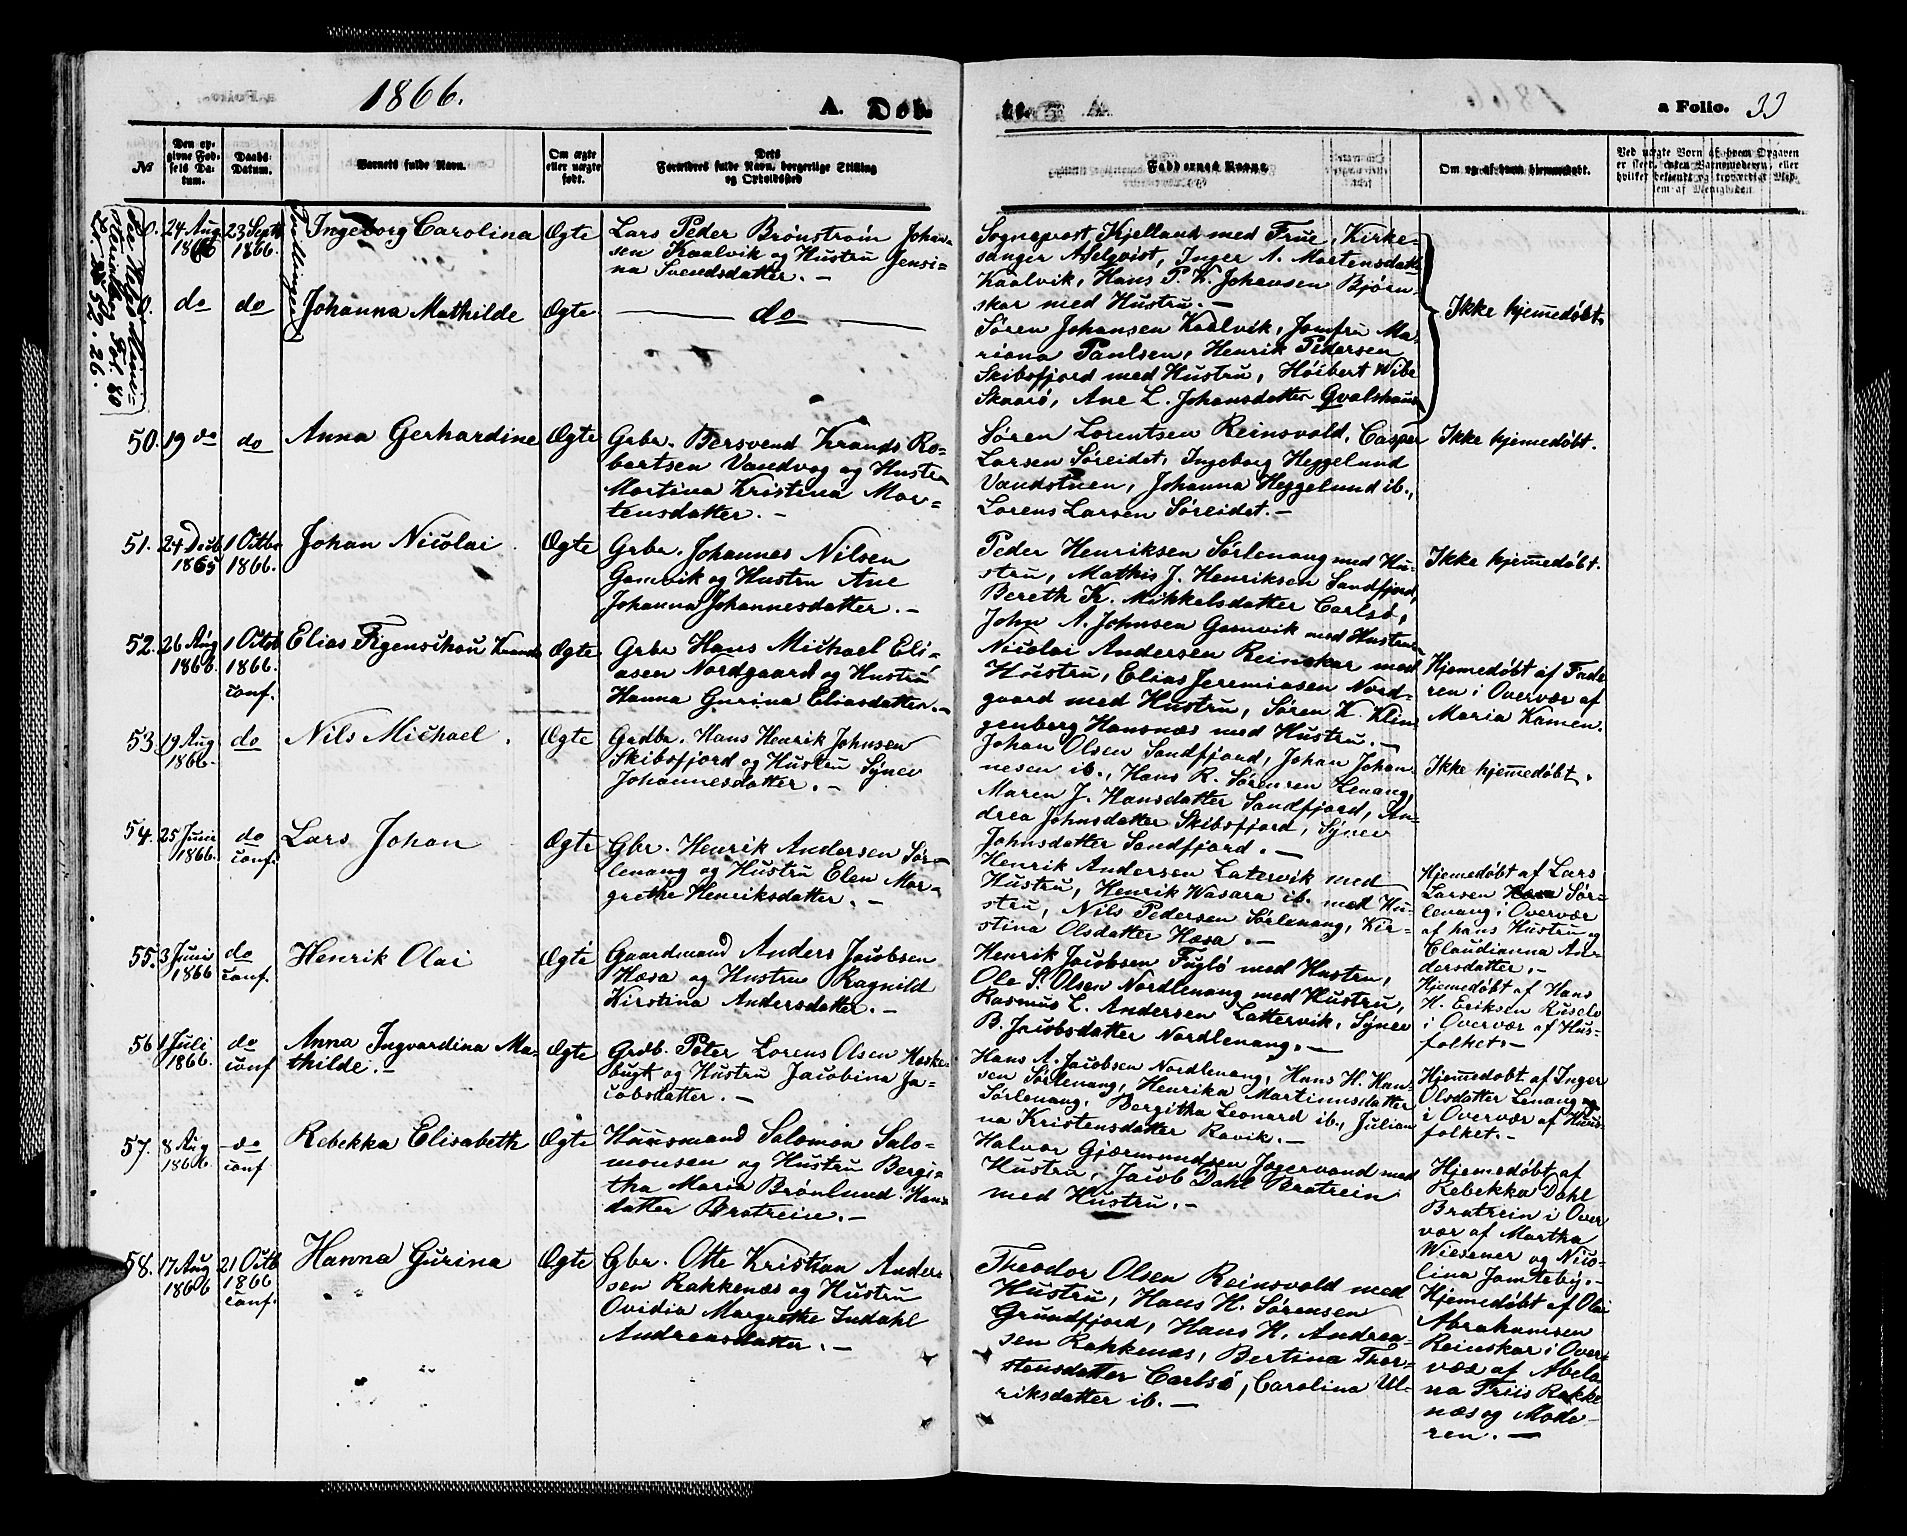 1866.
A. Døb-
te.
a Folio. 33
No
Den opgivne Fødsels Datum.
Daabs Datum.
Barnets fulde Navn.
Om ægte eller uægte født.
Dets Forældres fulde Navn, borgerlige Stilling og Opholdssted
Faddernes Navne.
Om og af hvem hjemmedøbt.
Ved uægte Børn af hvem Opgaven er skeet, enten Barnemoderen eller hvilket bekjendt og troværdigt Medlem af Menigheden.
24 Aug
1866
23 Septb
1866.
Tvillinger
Ingeborg Carolina
Ægte
Lars Peder Brønstrøm Johan-
sen Kaalvik og Hustru Jensi-
na Svendsdatter. -
Sogneprest Kjelland med Frue, Kirke-
sanger A. Selqvist, Inger A. Mortensdatt
Kaalvik, Hans P. K. Johansen Bjørn-
skar med Hustru. -
do
do
Johanna Mathilde
Ægte
do
Søren Johansen Kaalvik, Jomfru Ma-
riana Paulsen, Henrik Pedersen
Skibsfjord med Hustru, Høibert Wibe
Skaarø, Ane L. Johansdatter Gvalshaus
Ikke hjemmedøbt.
50.
19 do
do
Anna Gerhardine
Ægte
Grbr. Bersvend Krands Ro-
bertsen Vandvog og Hustru
Martina Kristina Mor-
tensdatter. -
Søren Lorentsen Reinsvold, Casper
Larsen Søreidet, Ingeborg Heggelund
Vandstuen, Johanna Heggelund ib.,
Lorens Larsen Søreidet. -
Ikke hjemmedøbt.
51.
24 Decb
1865
1 Octbr
1866.
Johan Nicolai
Ægte
Grbr. Johannes Nilsen
Gamvik og Hustru Ane
Johanna Johannesdatter. -
Peder Henriksen Sørlenang med Hu-
stru, Mathis J. Henriksen Sandfjord,
Bereth K. Mikkelsdatter Carlsø,
John A. Johnsen Gamvik med Hustru
Ikke hjemmedøbt.
52.
26 Aug
1866
1 Octb
1866.
conf.
Elias Figenschou
Ægte
Grbr Hans Michael Eli-
asen Nordgaard og Hustru
Hanna Gurina Eliasdatter. -
Nicolai Andersen Reinskar med
Hustru, Elias Jeremiasen Nord-
gaard med Hustru, Søren K. Klin-
genberg Hansnæs med Hustru. -
Hjemedøbt af Fade
ren i Overvær af
Maria Kamen.
53
19 Aug
1866.
do
Nils Michael.
Ægte
Grdbr. Hans Henrik Johnsen
Skibsfjord og Hustru Synev
Johannesdatter. -
Johan Olsen Sandfjord, Johan Johan-
nesen ib., Hans R. Sørensen Lenang,
Maren J. Hansdatter Sandfjord, An-
drea Johnsdatter Skibsfjord, Synev
Johnsdatter Sandfjord. -
Ikke hjemmedøbt.
54.
25 Juni
1866.
do
conf.
Lars Johan
Ægte
Gbr. Henrik Andersen Sør-
lenang og Hustru Elen Mar-
grethe Henriksdatter. -
Henrik Andersen Latervik med
Hustru, Henrik Wasara ib. med Hu-
stru, Nils Pedersen Sørlenang, Kir-
stina Olsdatter Hæsa. -
Hjemedøbt af Lars
Larsen Sør-
lenang i Overvær
af hans Hustru og
Claudianna An-
dersdatter. -
55.
3 Juni
1866
do
conf.
Henrik Olai
Ægte
Gaardmand Anders Jacobsen
Hasa og Hustru Ragnild
Kirstina Andersdatter. -
Henrik Jacobsen Fuglø med Hustru,
Ole S. Olsen Nordlenang med Hustru,
Rasmus L. Andersen Lattervik, Synev
B. Jacobsdatter Nordlenang. -
Hjemedøbt af Hans
H. Eriksen
i Overvær af Hus-
folket. -
56
1 Juli
1866.
do
conf
Anna Ingvardina Ma-
thilde. -
Ægte
Grdb. Peter Lorens Olsen Kaske-
bugt og Hustru Jacobina Ja-
cobsdatter. -
Hans A. Jacobsen Nordlenang, Hans H. Han-
sen Sørlenang, Henrika Martinusdatter
Sørlenang, Bergitha Leonard ib., Julian-
na Kristensdatter Ravik. -
Hjemmedøbt af Inger
Olsdatter Lenang
i Overvær af Huus-
folket. -
57.
8 Aug
1866.
do
conf
Rebekka Elisabeth
Ægte
Huusmand Salomon Salo-
monsen og Hustru Bergi-
tha Maria Brønlund Hans-
datter Bratrein. -
Halvor Gjærmundsen Jøgervand med
Hustru, Jacob Dahl Bratrein
med Hustru. -
Hjemedøbt af
Rebekka Dahl
Bratrein i Over
vær af Martha
Wiesener og Nico-
lina Jomteby. -
58.
17 Aug
1866
21 Octb
1866
conf.
Hanna Gurina
Ægte
Gbr. Otte Kristian Ander-
sen Rakkenæs og Hustru
Ovidia Margrethe Indahl
Andreasdatter. -
Theodor Olsen Reinsvold med
Hustru, Hans H. Sørensen
Grundfjord, Hans H. Andrea-
sen Rakkenæs, Bertina Thor-
stensdatter Carlsø, Carolina Ul-
riksdatter ib. -
Hjemedøbt af Olai
Abrahamsen
Reinskar i Over-
vær af Abelo-
na Friis Rakke-
næs og Mode-
ren. -